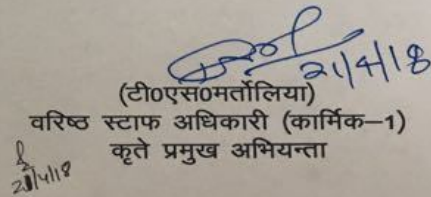 21/4/18
(टी0एस0मर्तोलिया)
वरिष्ठ स्टाफ अधिकारी (कार्मिक—1)
कृते प्रमुख अभियन्ता
21/4/18